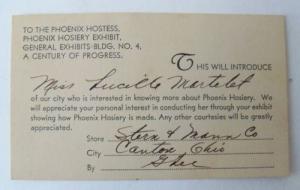 TO THE PHOENIX HOSTESS,
PHOENIX HOSIERY EXHIBIT,
GENERAL EXHIBITS BLDG. NO. 4,
A CENTURY OF PROGRESS.
THIS WILL INTRODUCE
Miss Lucille Martelet
of our city who is interested in knowing more about Phoenix Hosiery. We
will appreciate your personal interest in conducting her through your exhibit
showing how Phoenix Hosiery is made. Any other courtesies will be greatly
appreciated.
Store Stern & Mann Co
City Canton Ohio
By